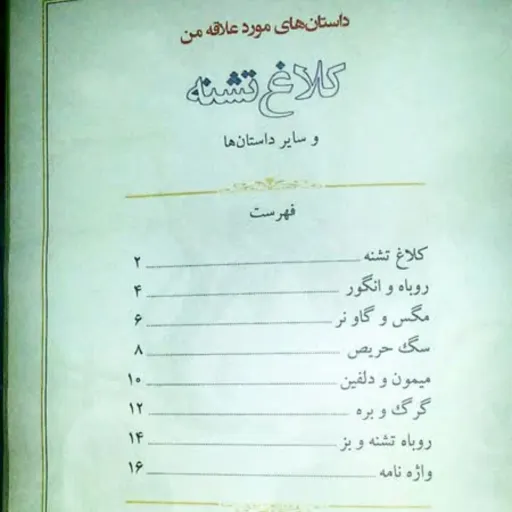 داستان‌های مورد علاقه من
کلاغ تشنه
و سایر داستان‌ها
فهرست
کلاغ تشنه ۲
روباه و انگور ۴
مگس و گاو نر ۶
سگ حریص ۸
میمون و دلفین ۱۰
گرگ و بره ۱۲
روباه تشنه و بز ۱۴
واژه نامه ۱۶